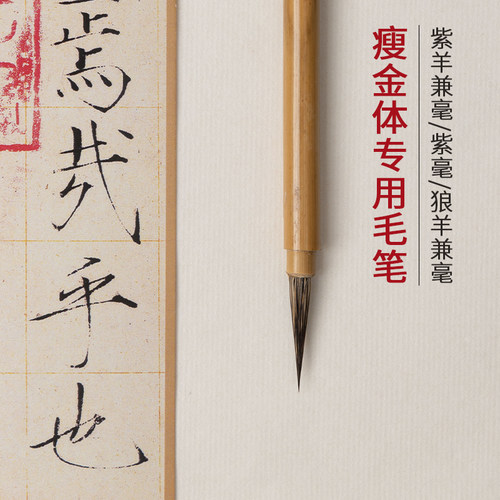 紫羊兼毫/紫毫/狼羊兼毫
瘦金体专用毛笔
焉哉乎也